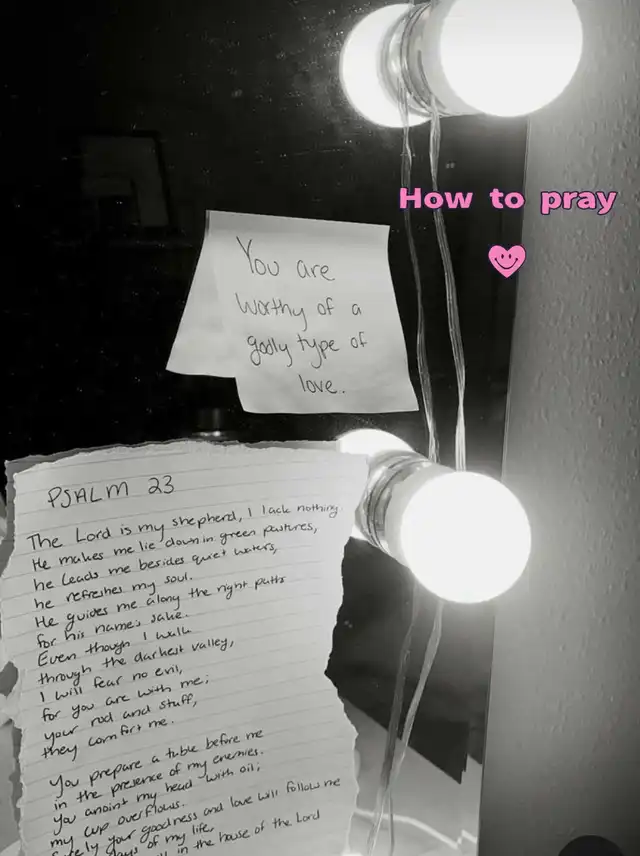 How to pray
You are
worthy of a
godly type of
love.
PSALM 23
The Lord is my shepherd, I lack nothing
He makes me lie down in green pastures,
he leads me besides quiet waters,
he refreshes my soul.
He guides me along the right paths
for his name's sake.
Even though I walk
through the darkest valley,
I will fear no evil,
for you are with me;
your rod and stuff,
they comfort me.
You prepare a table before me
in the presence of my enemies.
You anoint my head with oil;
my cup overflows.
Surely your goodness and love will follow me
days of my life
in the house of the Lord